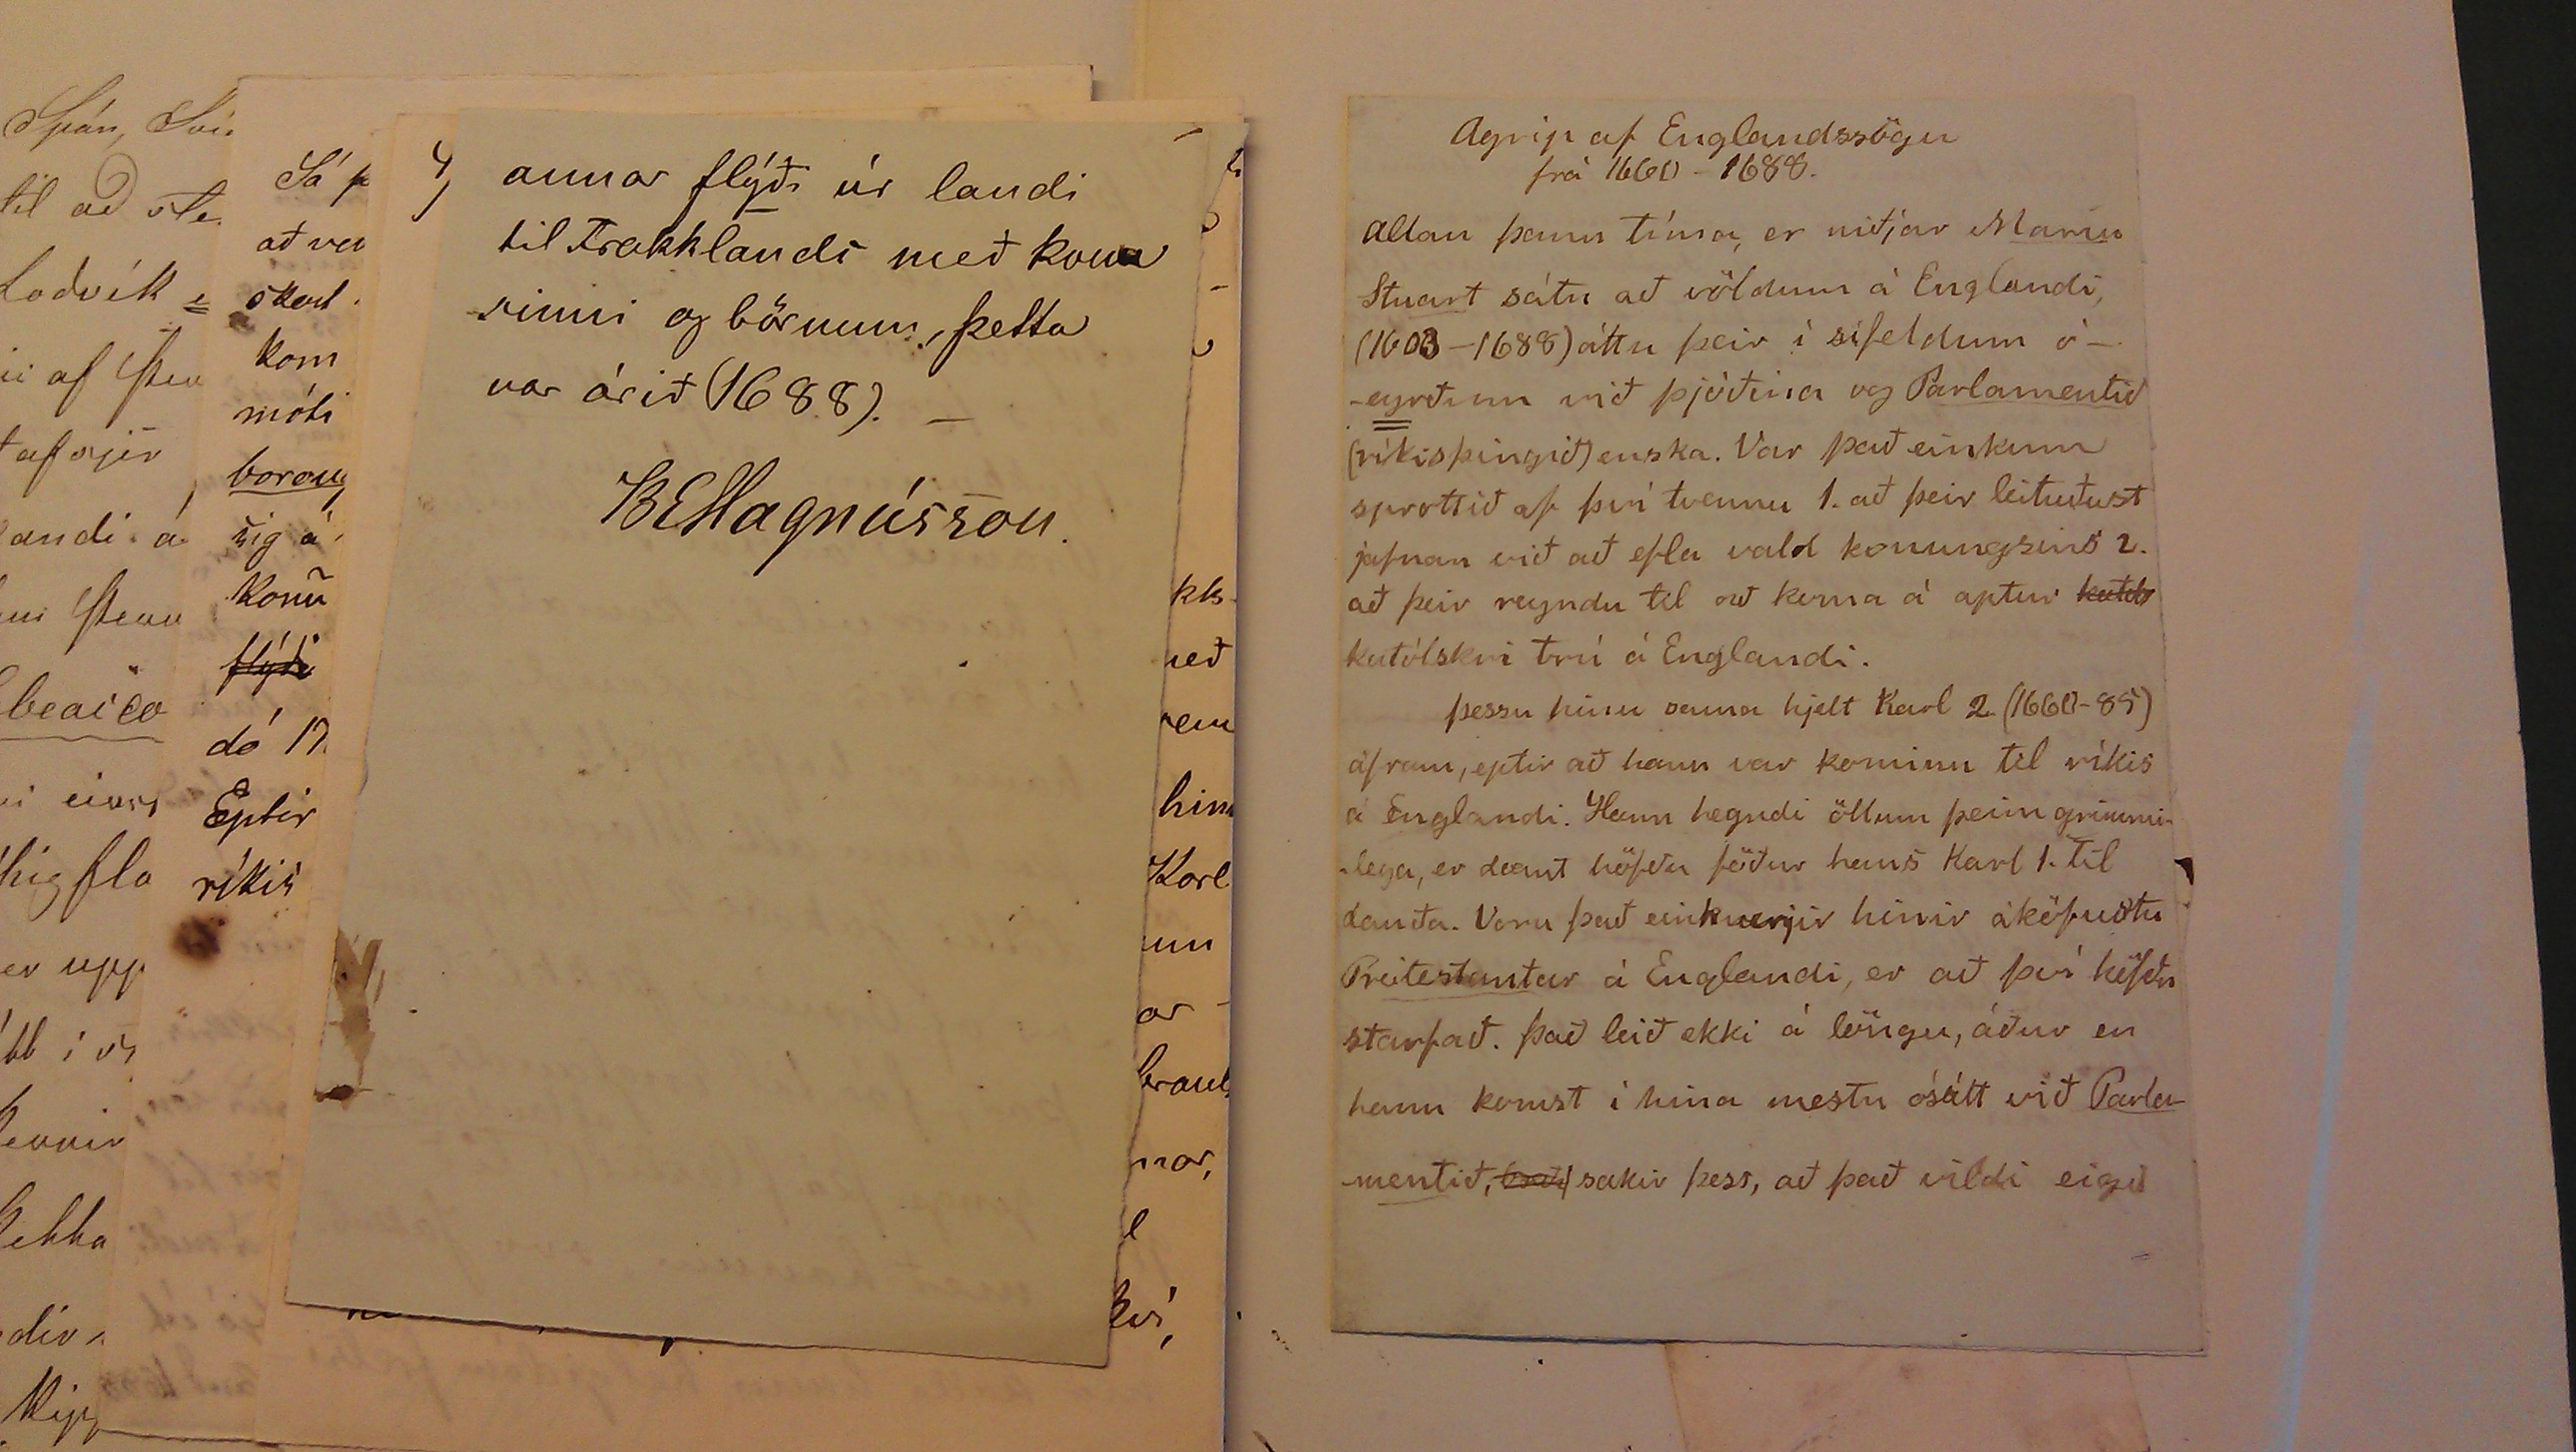 Spán, Sví
til að ste
Lodvík
af þeu
af sjer
andi á
beaico
hig fla
er upp
Sá þ
að ver
skal
kom
móti
boroug
sig á
konũ
flýði
dó 17
Eptir
ríkis
4)
annar flýði úr landi
til Frakklands með konu
sinni og börnum, þetta
var árið (1688). —
BEMagnússon.
kks-
með
rem
him
Karl
un
ar -
braut,
nar,
l
því,
Agrip af Englandssögu
frá 1660 - 1688.
Allan þann tíma, er niðjar Maríu
Stuart sátu að völdum á Englandi,
(1603 - 1688) áttu þeir í sífeldum ó-
-eyrðum við þjóðina og Parlamentið
(ríkisþingið) enska. Var það einkum
sprottið af því tvennu 1. að þeir leituðust
jafnan við að efla vald konungsins 2.
að þeir reyndu til að koma á aptur katols
katólskri trú á Englandi.
þessu hinu sama hjelt Karl 2. (1660-85)
áfram, eptir að hann var kominn til ríkis
á Englandi. Hann hegndi öllum þeim grimmi-
-lega, er dæmt höfðu föður hans Karl 1. til
dauða. Voru það einkuerjir hinir áköfustu
Preitestantar á Englandi, er að því höfðu
starfað. það leið ekki á löngu, áður en
hann komst í hina mestu ósátt við Parla-
-mentið, sakir þess, að það vildi eigi